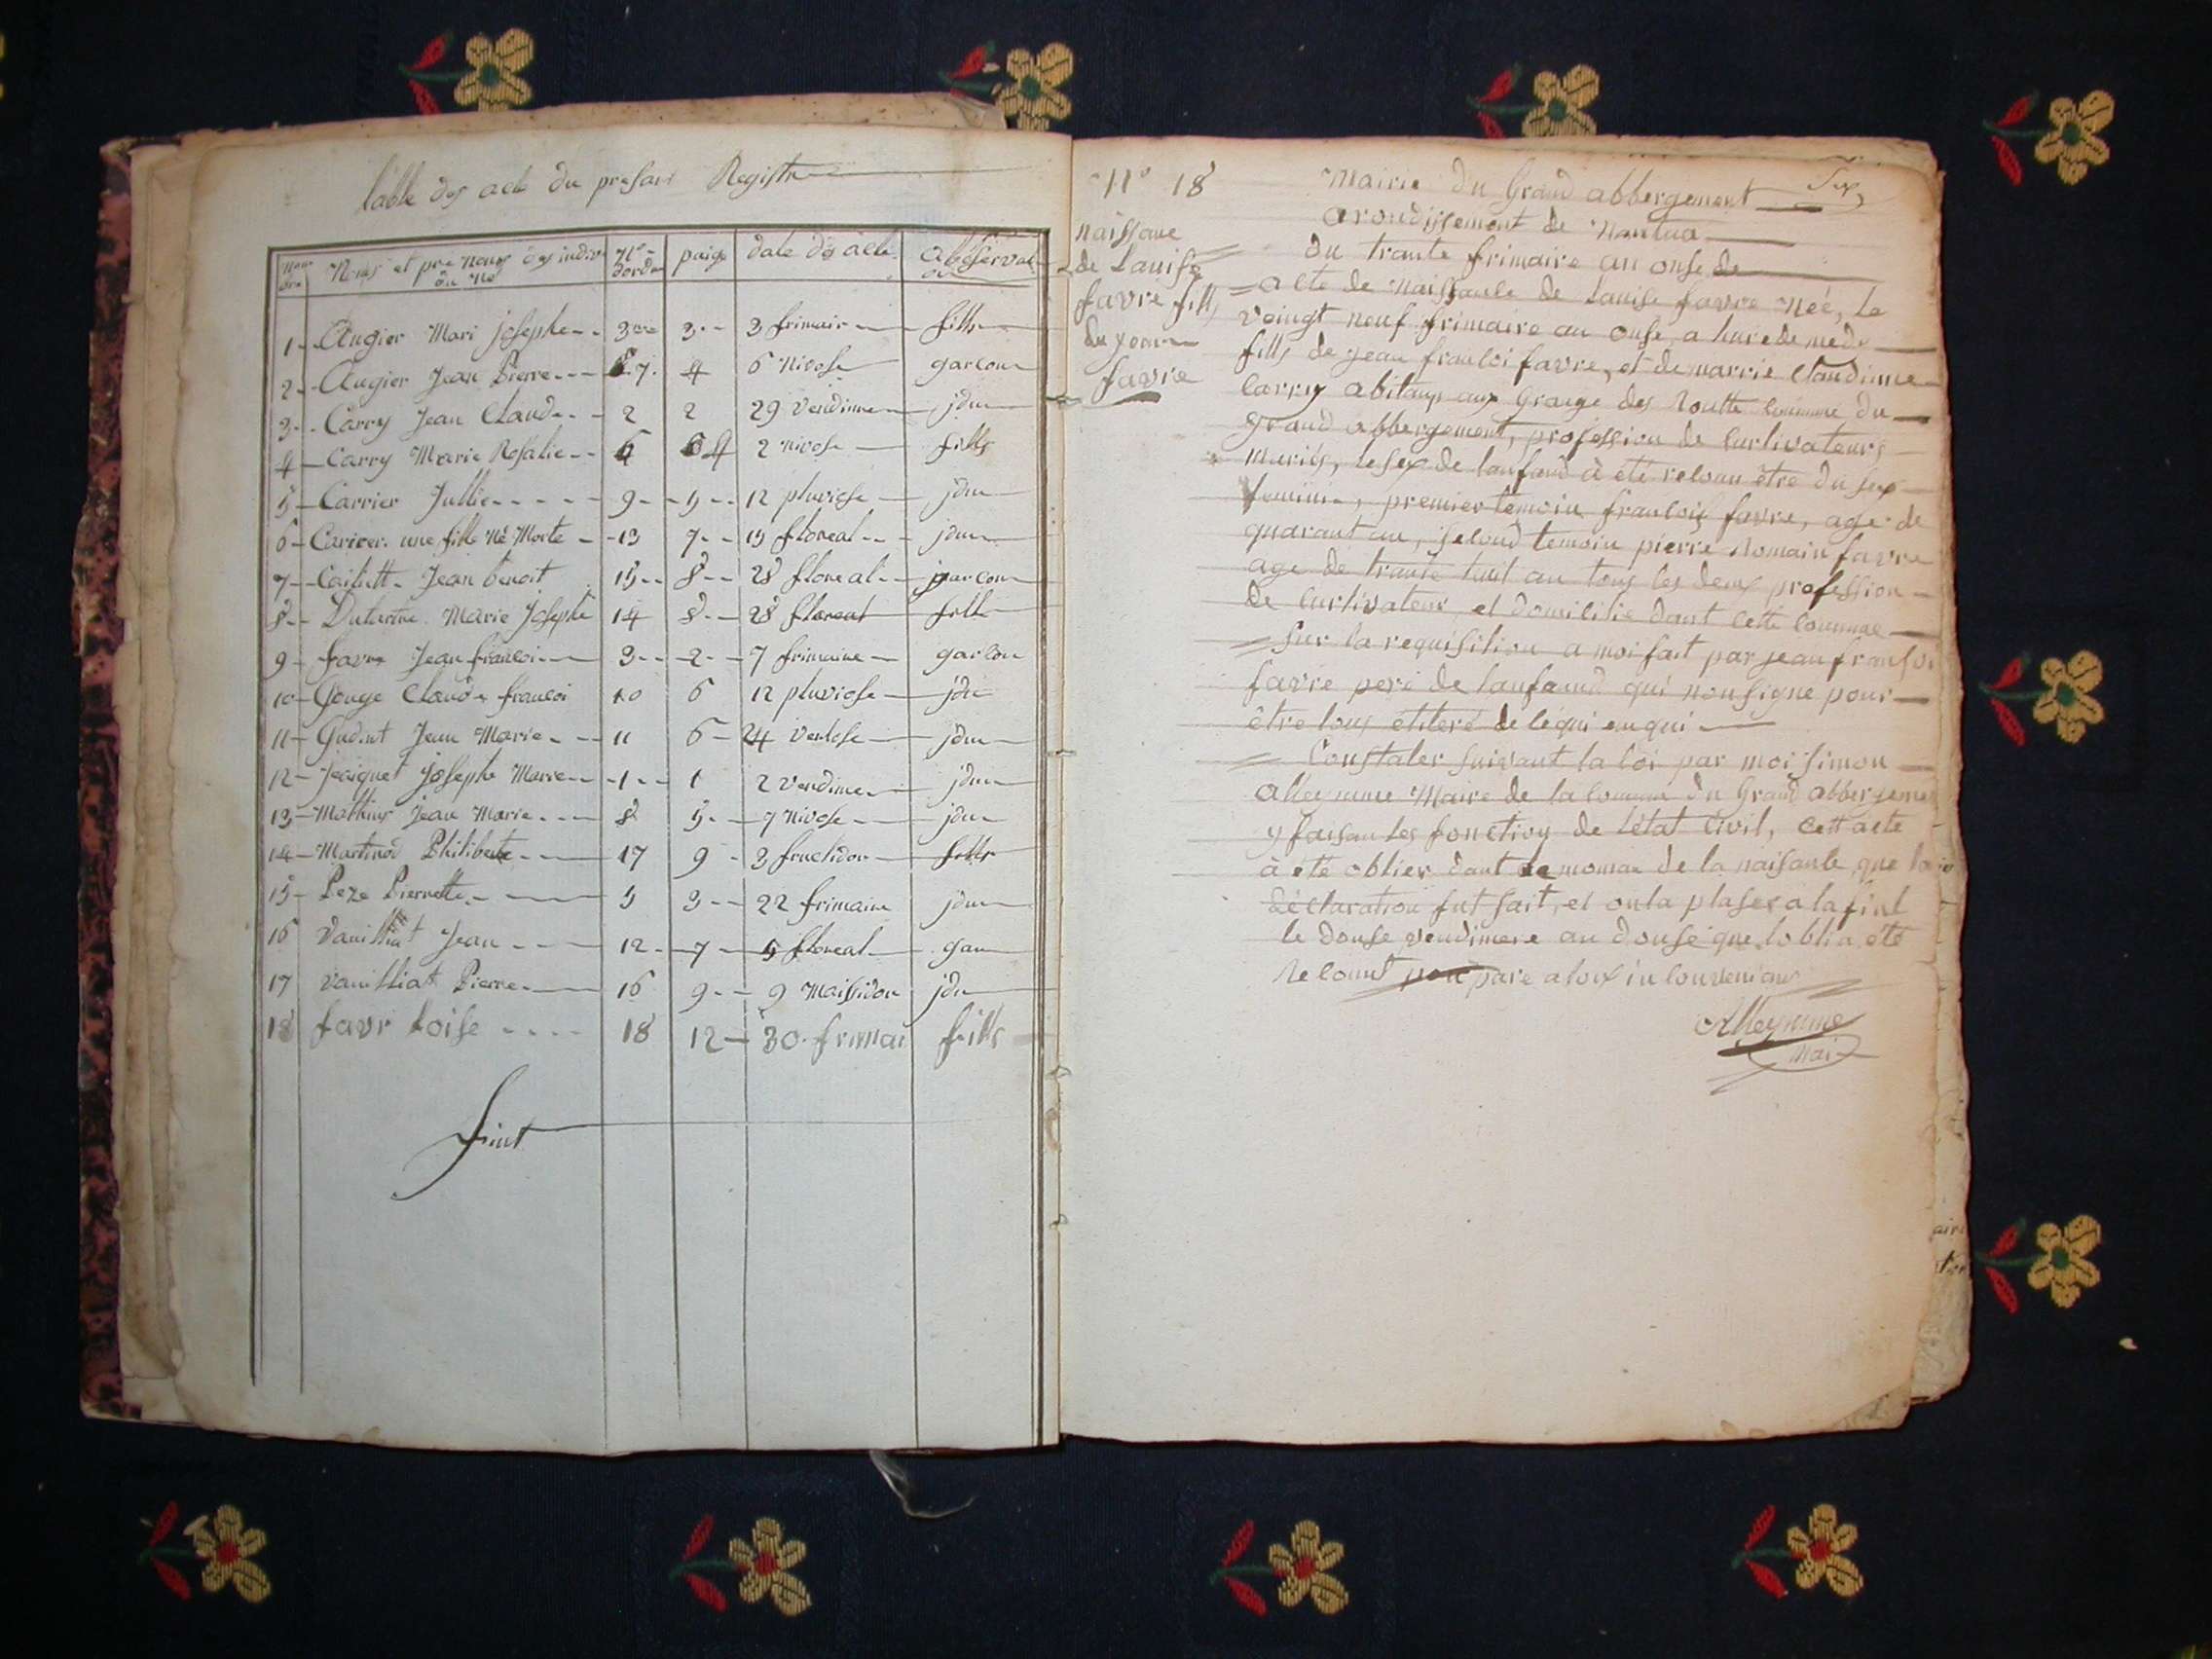 table des acte du presant Registre
Noms et pre noms des indiv N° paige date des acte observat
du né dordre
1 Augier Mari josephe 3 3 frimair fille
2 Augier Jean Pierre 7 4 6 nivose garcon
3 Carry Jean Claude 2 2 29 vendime jdm
4 Carry Marie Rosalie 6 4 2 nivose fille
5 Carrier Jullie 9 5 12 pluviose jdm
6 Carrier une fille né Morte 13 7 15 floreal jdm
7 Jean benoit 15 8 28 floreal garcon
8 Marie josephe 14 8 28 floreal fille
9 favre Jean francoi 3 2 7 frimaire garcon
10 Gouge Claude francoi 10 6 12 pluviose jdm
11 Jean Marie 11 6 24 ventose jdm
12 Jacquet josephe Marie 1 1 2 vendime jdm
13 Mathieu Jean Marie 8 5 7 nivose jdm
14 Martinod Philiberte 17 9 3 fructidor fille
15 Peze Pierrette 5 3 22 frimaire jdm
16 Jean 12 7 5 floreal gar
17 vanilliat Pierre 16 9 9 Maissidor jdm
18 favr loise 18 12 30 frimai fills
fint
N° 18
naissance
de Lauise
favre fills
du
favre
Mairie du Grand abbergement
arondissement de Nantua
du trante frimaire an onse de
acte de naissance de Lauise favre Néé, le
veingt neuf frimaire an onse, a hure de medi
fills de jean francoi favre, et de marrie Claudinne
Carry abitans aux Grange des Routte commune du
grand abbergement, profession de curtivateurs
mariés, le sex de lanfand à été reconu être du sex
feminin, premier temoin francois favre, age de
quarant an, second temoin pierre Romain favre
age de trante huit an tous les deux profession
de curtivateur et domicilié dant cette commune
sur la requisition a moi fait par jean fransoi
favre peré de lanfand qui non signe pour
être
Constater suivant la loi par moi simon
Alleymme Maire de la commune du Grand abbergemen
y faisan les fonction de létat civil, cett acte
à été oblier dant le moman de la naisance, que la
déclaration fut fait, et on la plaser a la fint
le douse vendimere an douse que loblia été
reconnut pare a tous inconveniant
Alleymme
mai